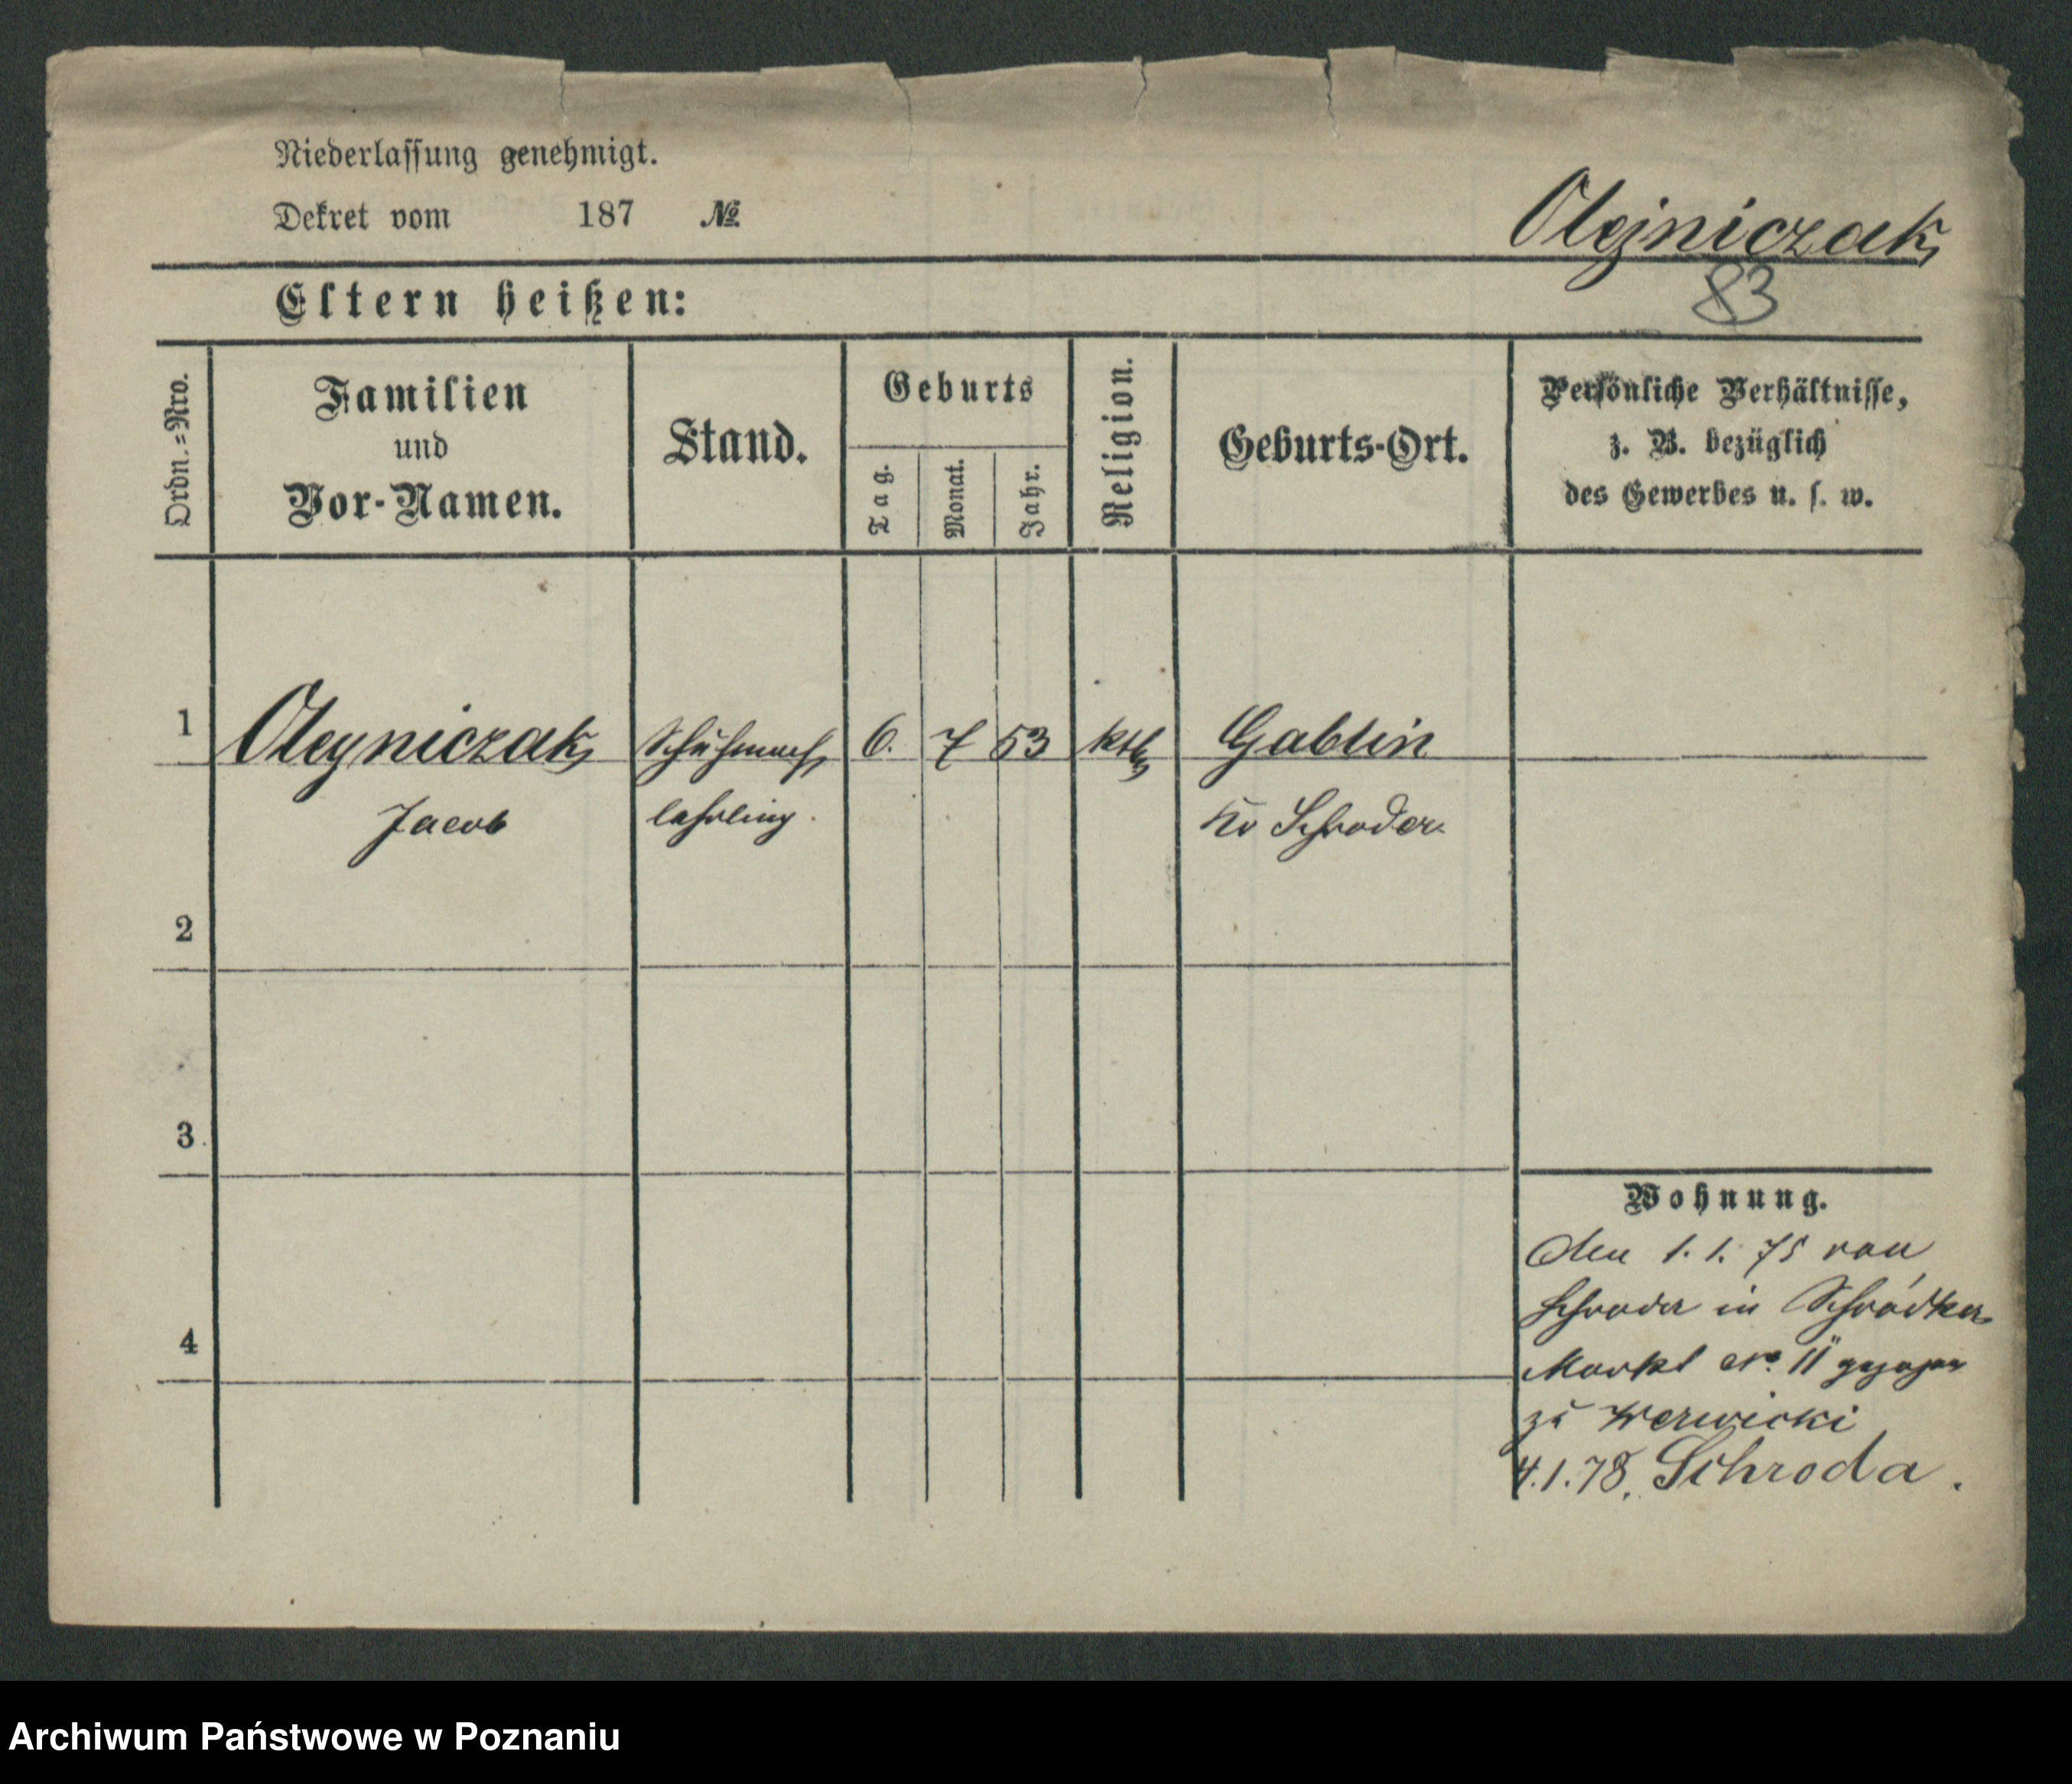 Niederlassung genehmigt.
Dekret vom 187 №
Olejniczak
83
Eltern heißen:
Ordn.=Nro.
Familien
und
Vor-Namen.
Stand.
Geburts
Tag.
Monat.
Jahr.
Religion.
Geburts-Ort.
Persönliche Verhältnisse,
z. B. bezüglich
des Gewerbes u. s. w.
1 Oleyniczak Schuhmach 6. 7 53 kth Gablin
Jacob lehrling. Kr Schroder
2
3
4
Wohnung.
den 1. 1. 75 von
Schroda in Schrodker
Markt No 11 gezogen
zu
4.1.78. Schroda.
Archiwum Państwowe w Poznaniu